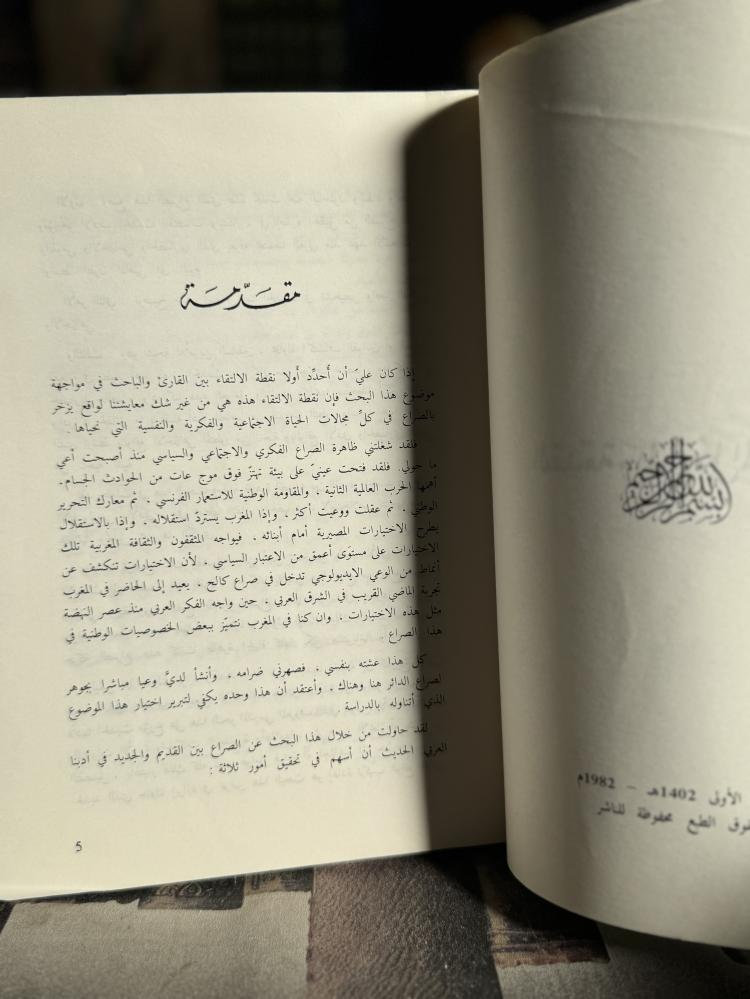 بسم الله الرحمن الرحيم
الأولى 1402هـ - 1982م
الطبع محفوظة للناشر
مقدّمة
إذا كان عليّ أن أحدِّد أولا نقطة الالتقاء بين القارئ والباحث في مواجهة
موضوع هذا البحث فإن نقطة الالتقاء هذه هي من غير شك معايشتنا لواقع يزخر
بالصراع في كلِّ مجالات الحياة الاجتماعية والفكرية والنفسية التي نحياها.
فلقد شغلتني ظاهرة الصراع الفكري والاجتماعي والسياسي منذ أصبحت أعي
ما حولي. فلقد فتحت عينيّ على بيئة تهتزّ فوق موج عات من الحوادث الجسام.
أهمها الحرب العالمية الثانية ، والمقاومة الوطنية للاستعمار الفرنسي ، ثم معارك التحرير
الوطني . ثم عقلت ووعيت أكثر ، وإذا المغرب يستردّ استقلاله . وإذا بالاستقلال
يطرح الاختيارات المصيرية أمام أبنائه . فيواجه المثقفون والثقافة المغربية تلك
الاختيارات على مستوى أعمق من الاعتبار السياسي . لأن الاختيارات تنكشف عن
أنماط من الوعي الايديولوجي تدخل في صراع كالح . يعيد إلى الحاضر في المغرب
تجربة الماضي القريب في الشرق العربي . حين واجه الفكر العربي منذ عصر النهضة
مثل هذه الاختيارات ، وان كنا في المغرب نتميّز ببعض الخصوصيات الوطنية في
هذا الصراع .
كل هذا عشته بنفسي . فصهرني ضرامه . وأنشأ لديَّ وعيا مباشرا بجوهر
لصراع الدائر هنا وهناك . وأعتقد أن هذا وحده يكفي لتبرير اختيار هذا الموضوع
الذي أتناوله بالدراسة .
لقد حاولت من خلال هذا البحث عن الصراع بين القديم والجديد في أدبنا
العربي الحديث أن أسهم في تحقيق أمور ثلاثة :
5